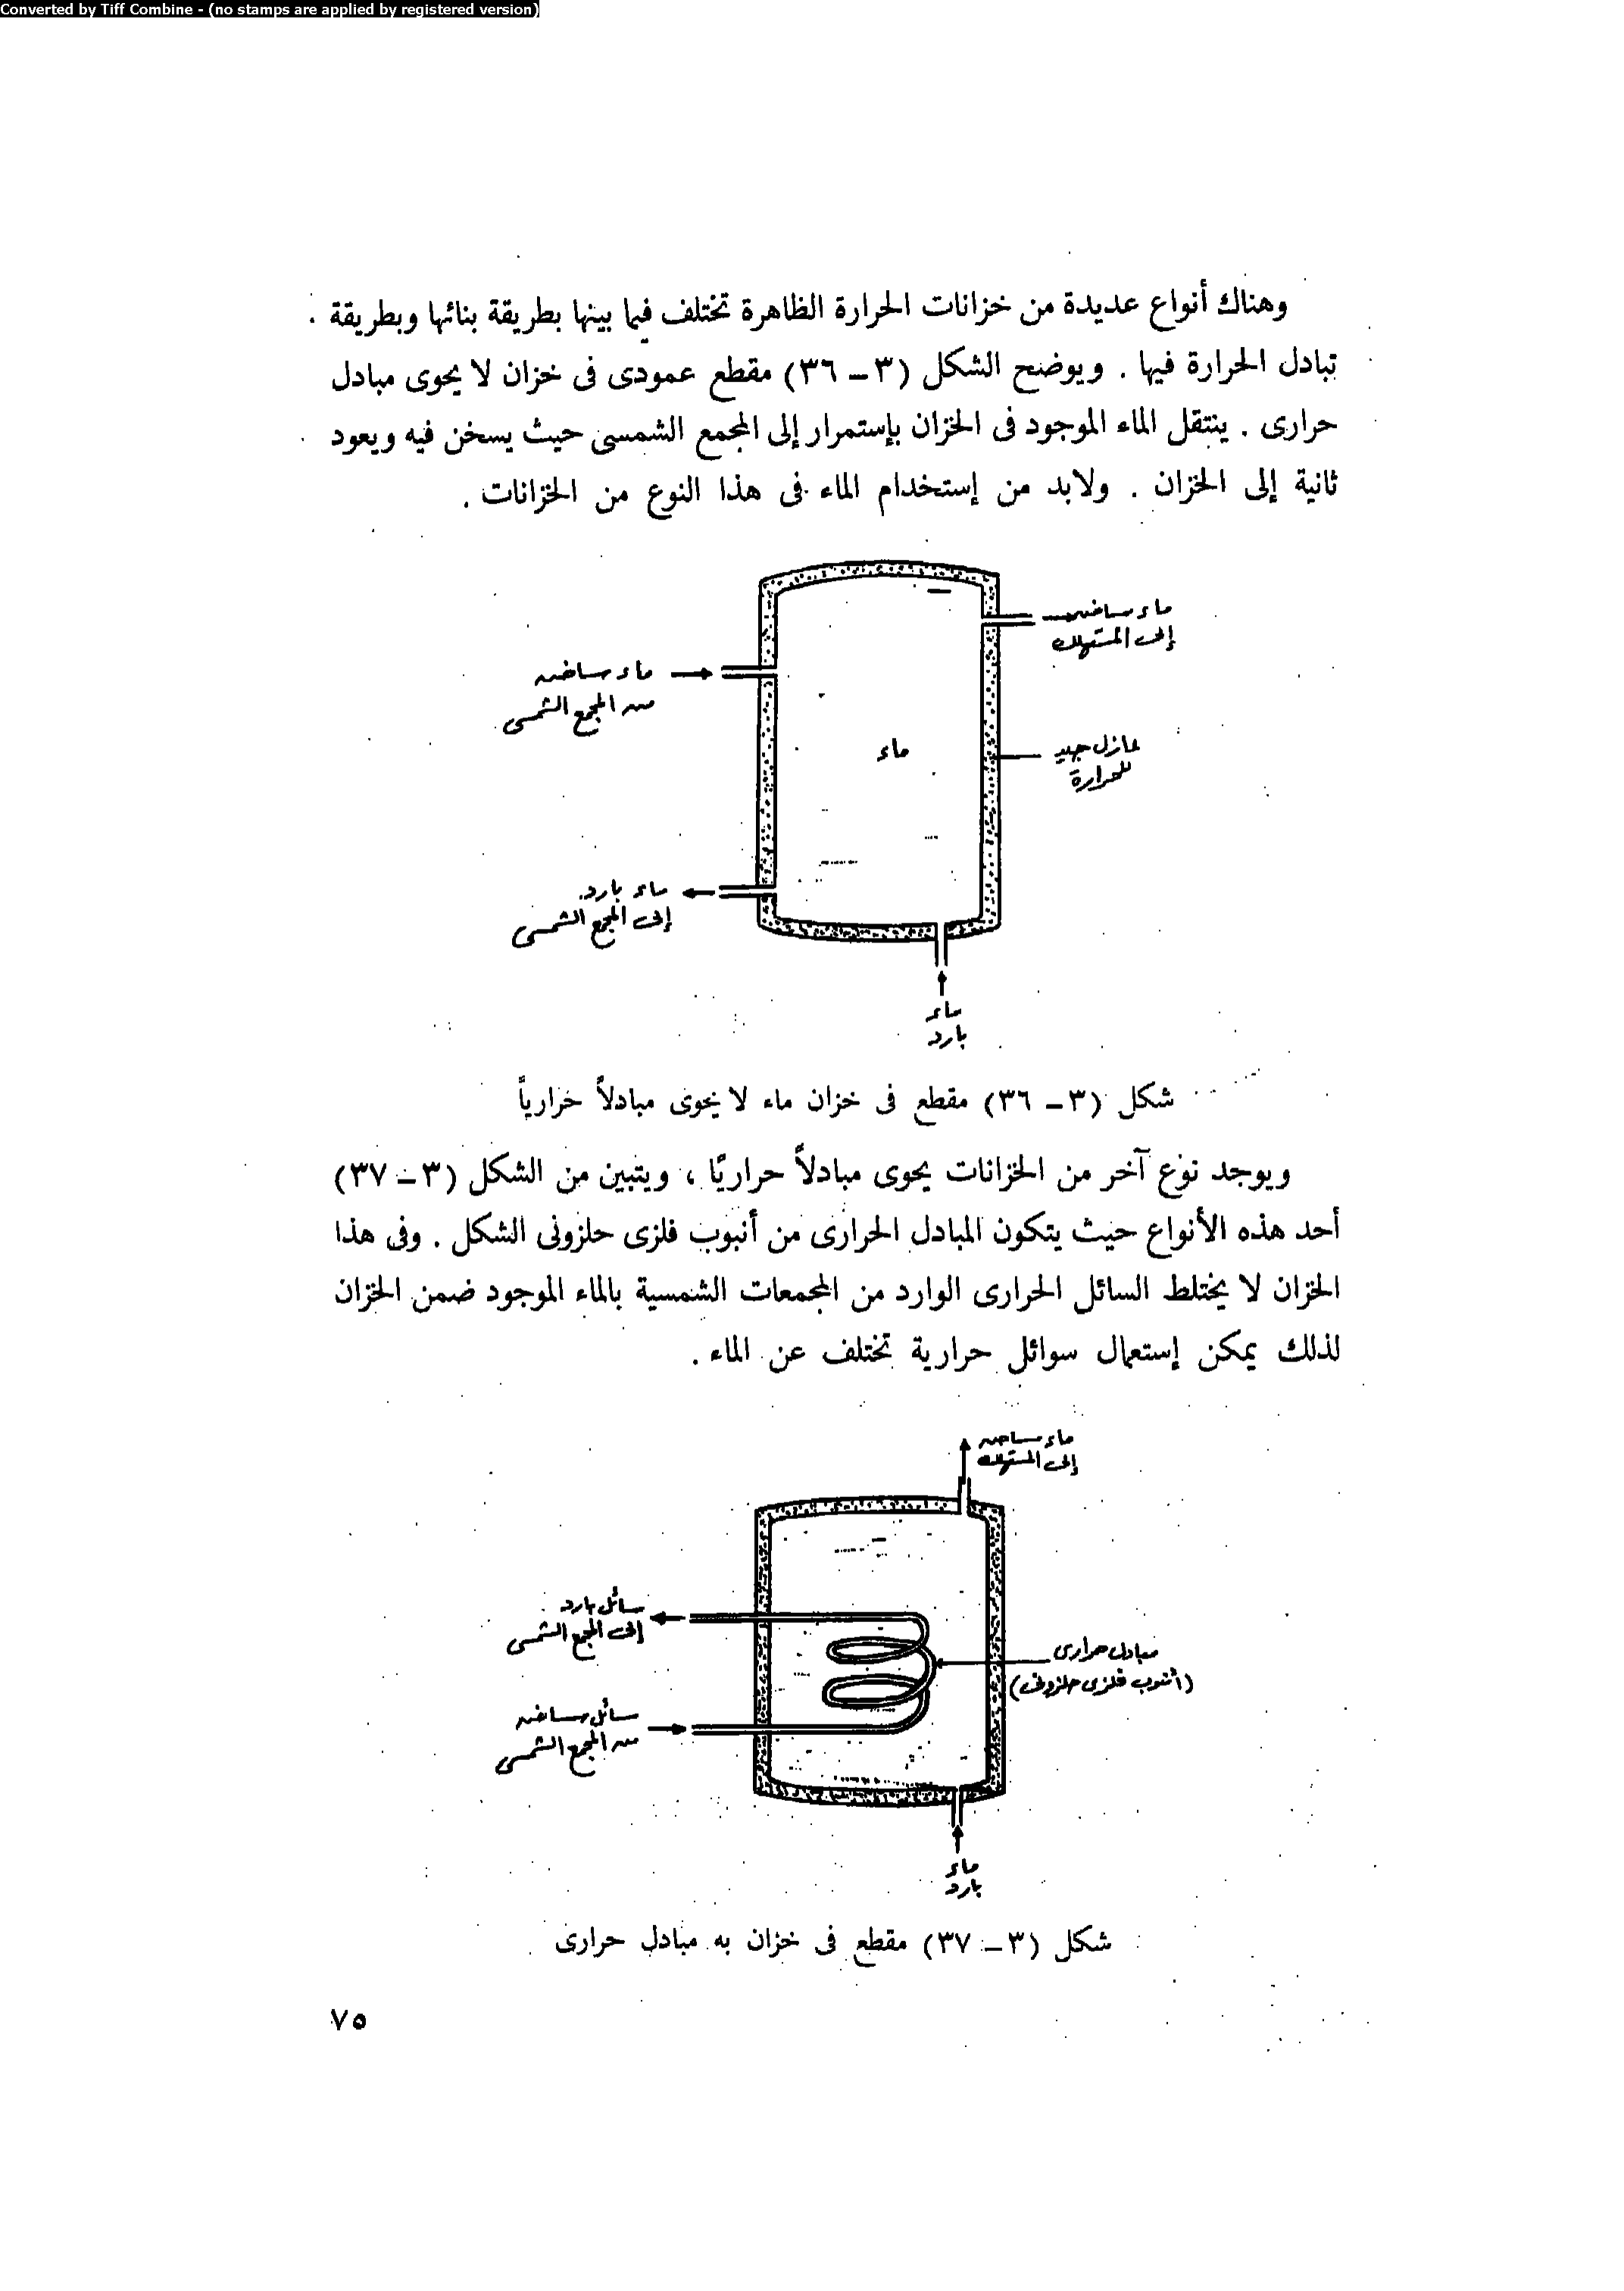 Converted by Tiff Combine - (no stamps are applied by registered version)
وهناك أنواع عديدة من خزانات الحرارة الظاهرة تختلف فيما بينها بطريقة بنائها وبطريقة
تبادل الحرارة فيها . ويوضح الشكل (٣ – ٣٦) مقطع عمودى فى خزان لا يحوى مبادل
حرارى . ينتقل الماء الموجود فى الخزان بإستمرار إلى المجمع الشمسى حيث يسخن فيه ويعود
ثانية إلى الخزان . ولابد من إستخدام الماء فى هذا النوع من الخزانات .
ماء ساخن
إلى المستهلك
ماء ساخن
من المجمع الشمسى
ماء
عازل جيد
للحرارة
ماء بارد
إلى المجمع الشمسى
ماء
بارد
شكل (٣ – ٣٦) مقطع فى خزان ماء لا يحوى مبادلاً حرارياً
ويوجد نوع آخر من الخزانات يحوى مبادلاً حراريًا ، ويتبين من الشكل (٣ – ٣٧)
أحد هذه الأنواع حيث يتكون المبادل الحرارى من أنبوب فلزى حلزونى الشكل . وفى هذا
الخزان لا يختلط السائل الحرارى الوارد من المجمعات الشمسية بالماء الموجود ضمن الخزان
لذلك يمكن إستعمال سوائل حرارية تختلف عن الماء .
ماء ساخن
إلى المستهلك
سائل بارد
إلى المجمع الشمسى
مبادل حرارى
(أنبوب فلزى حلزونى)
سائل ساخن
من المجمع الشمسى
ماء
بارد
شكل (٣ – ٣٧) مقطع فى خزان به مبادل حرارى
٧٥